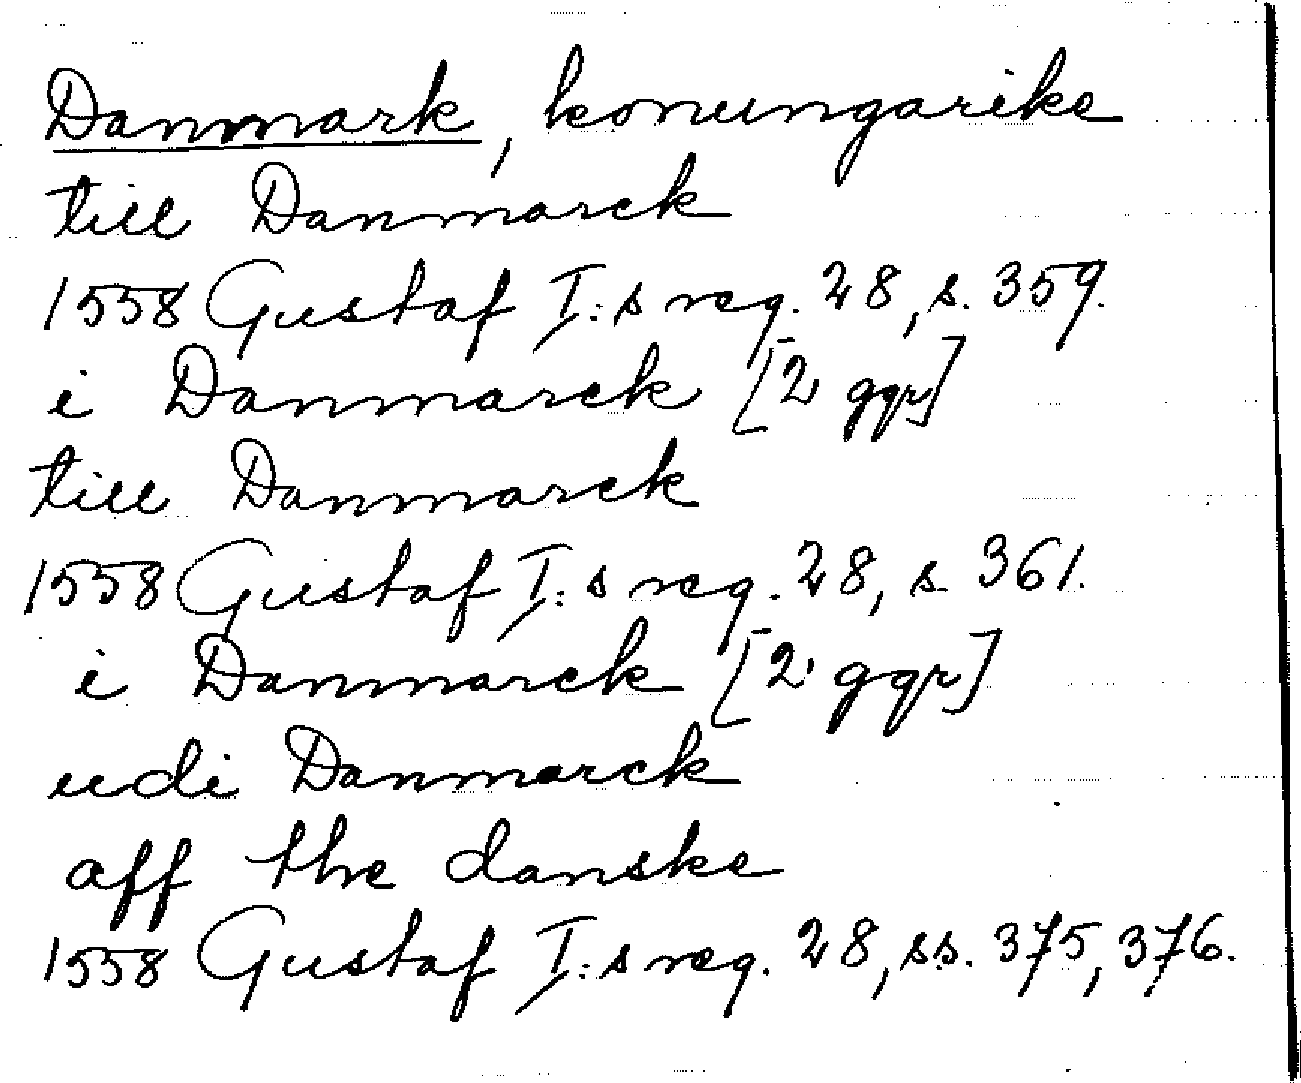 Danmark, konungarike
till Danmarck
1558 Gustaf I:s reg. 28, s. 359.
i Danmarck [2 ggr]
till Danmarck
1558 Gustaf I:s reg. 28, s. 361.
i Danmarck [2 ggr]
udi Danmarck
aff the danske
1558 Gustaf I:s reg. 28, ss. 375, 376.